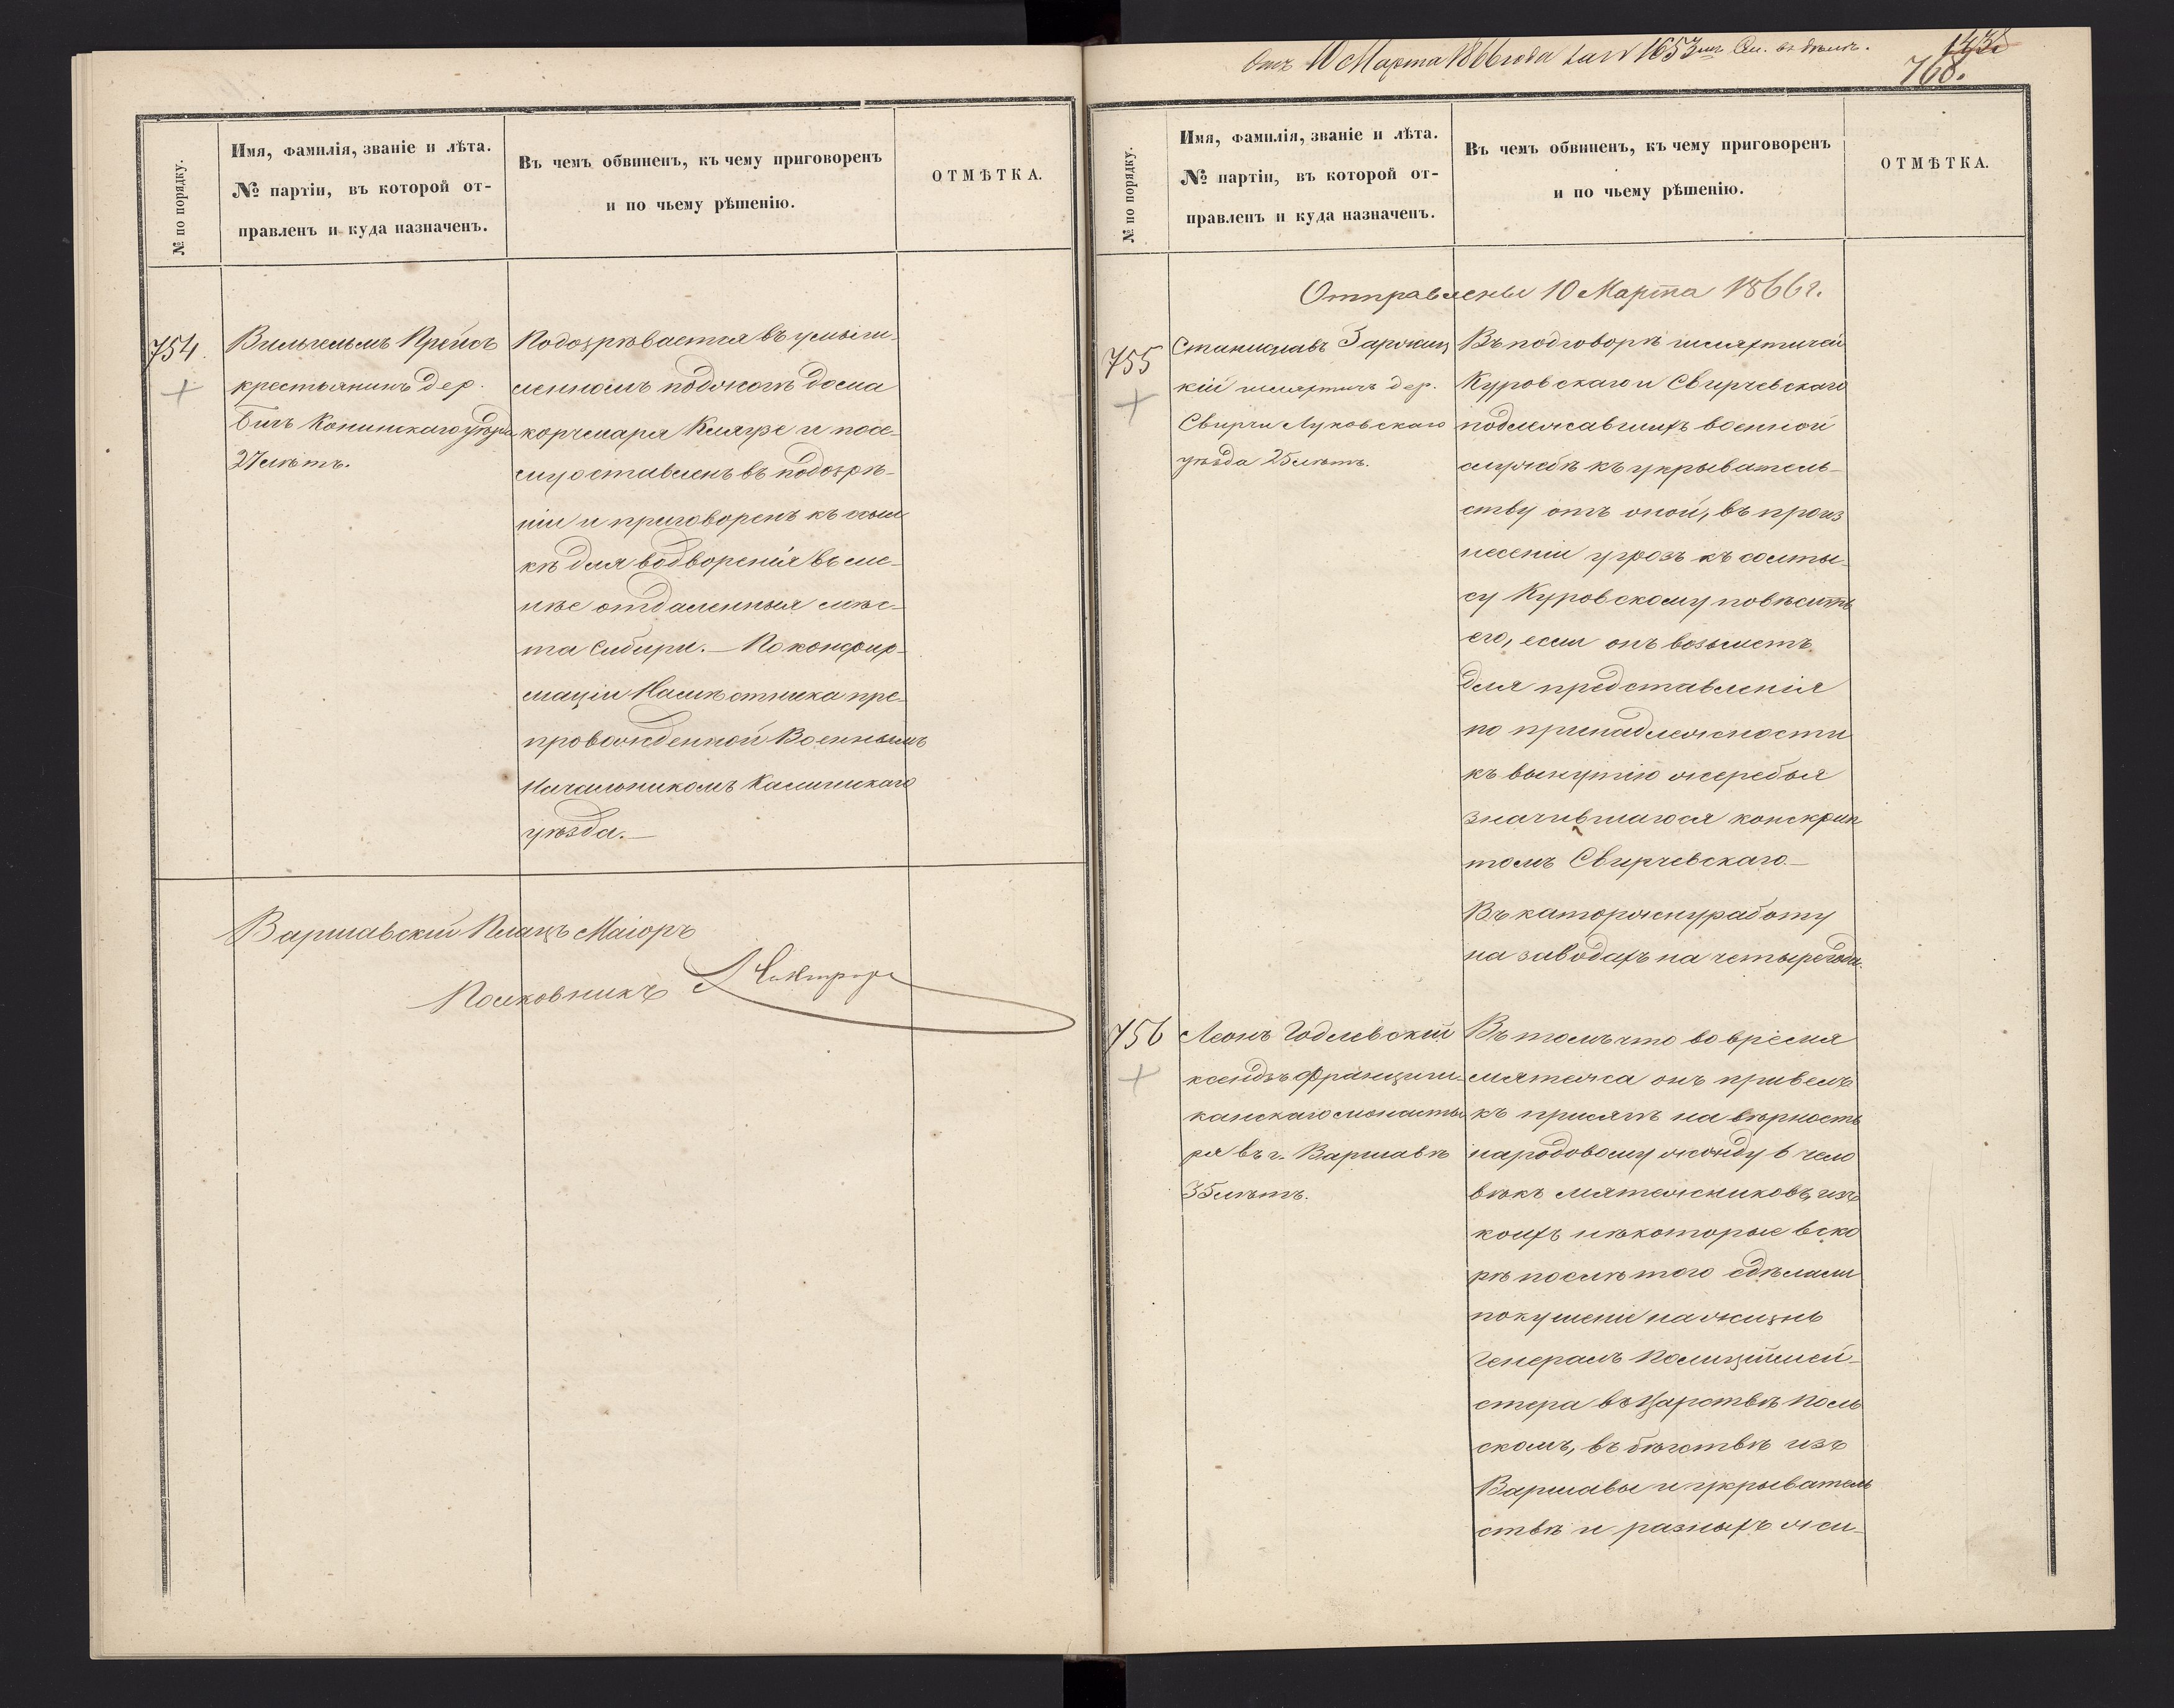 № по порядку.
Имя, фамилія, званіе и лѣта.
№ партіи, въ которой от-
правленъ и куда назначенъ.
Въ чемъ обвиненъ, къ чему приговоренъ
и по чьему рѣшенію.
ОТМѢТКА.
754.
Вильгельмъ Прейсъ
крестьянинъ дер.
Конинскаго уѣзда
27 лѣтъ.
Подозрѣвается въ умыш-
ленномъ поджогѣ дома
корчмаря и посе-
му оставленъ въ подозрѣ-
ніи и приговоренъ къ ссыл
кѣ для водворенія въ ме-
нѣе отдаленныя мѣс-
та Сибири. — По конфир-
маціи Намѣстника пре-
провожденной Военнымъ
Начальникомъ Калишскаго
уѣзда. —
Варшавскій Плацъ Маіоръ
Полковникъ
Отъ 10 Марта 1866 года за № 1653
143
768.
№ по порядку.
Имя, фамилія, званіе и лѣта.
№ партіи, въ которой от-
правленъ и куда назначенъ.
Въ чемъ обвиненъ, къ чему приговоренъ
и по чьему рѣшенію.
ОТМѢТКА.
Отправлены 10 Марта 1866 г.
755
Станиславъ
кій шляхтичъ дер.
Свирчи Луковскаго
уѣзда 25 лѣтъ.
Въ подговорѣ шляхтичей
Куровскаго и Свирчевскаго
подлежавшихъ военной
службѣ къ укрыватель-
ству отъ оной, въ произ
несеніи угрозъ къ солты-
су Куровскому повѣсить
его, если онъ возьметъ
для представленія
по принадлежности
къ вынутію жеребья
значившагося конскрип
томъ Свирчевскаго. —
Въ каторжну работу
на заводахъ на четыре года.
756
Леонъ Годлевскій
ксендзъ Францишк-
канскаго монасты
ря въ г. Варшавѣ
35 лѣтъ.
Въ томъ что во время
мятежа онъ привелъ
къ присягѣ на вѣрность
народовому жонду 6 чело
вѣкъ мятежниковъ, изъ
коихъ нѣкоторые вско
рѣ послѣ того сдѣлали
покушеніе на жизнь
Генералъ Полицiймей-
стера въ Царствѣ Поль
скомъ, въ бѣгствѣ изъ
Варшавы и укрыватель
ствѣ и разныхъ жи-